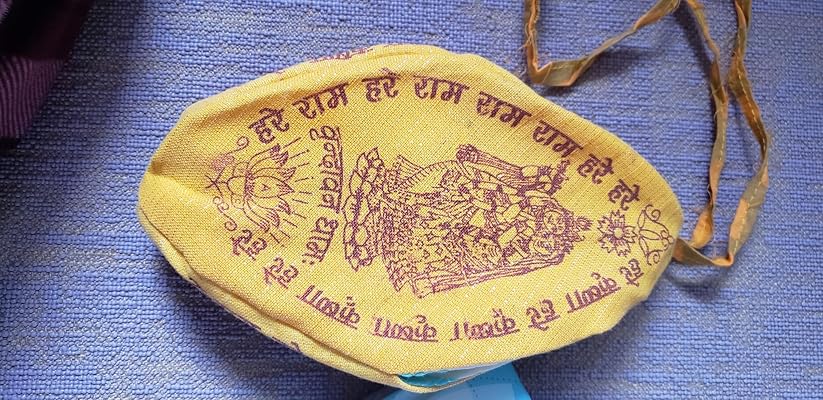 हरे राम हरे राम राम राम हरे हरे
वृन्दावन धाम.
हरे कृष्णा हरे कृष्णा कृष्णा कृष्णा हरे हरे